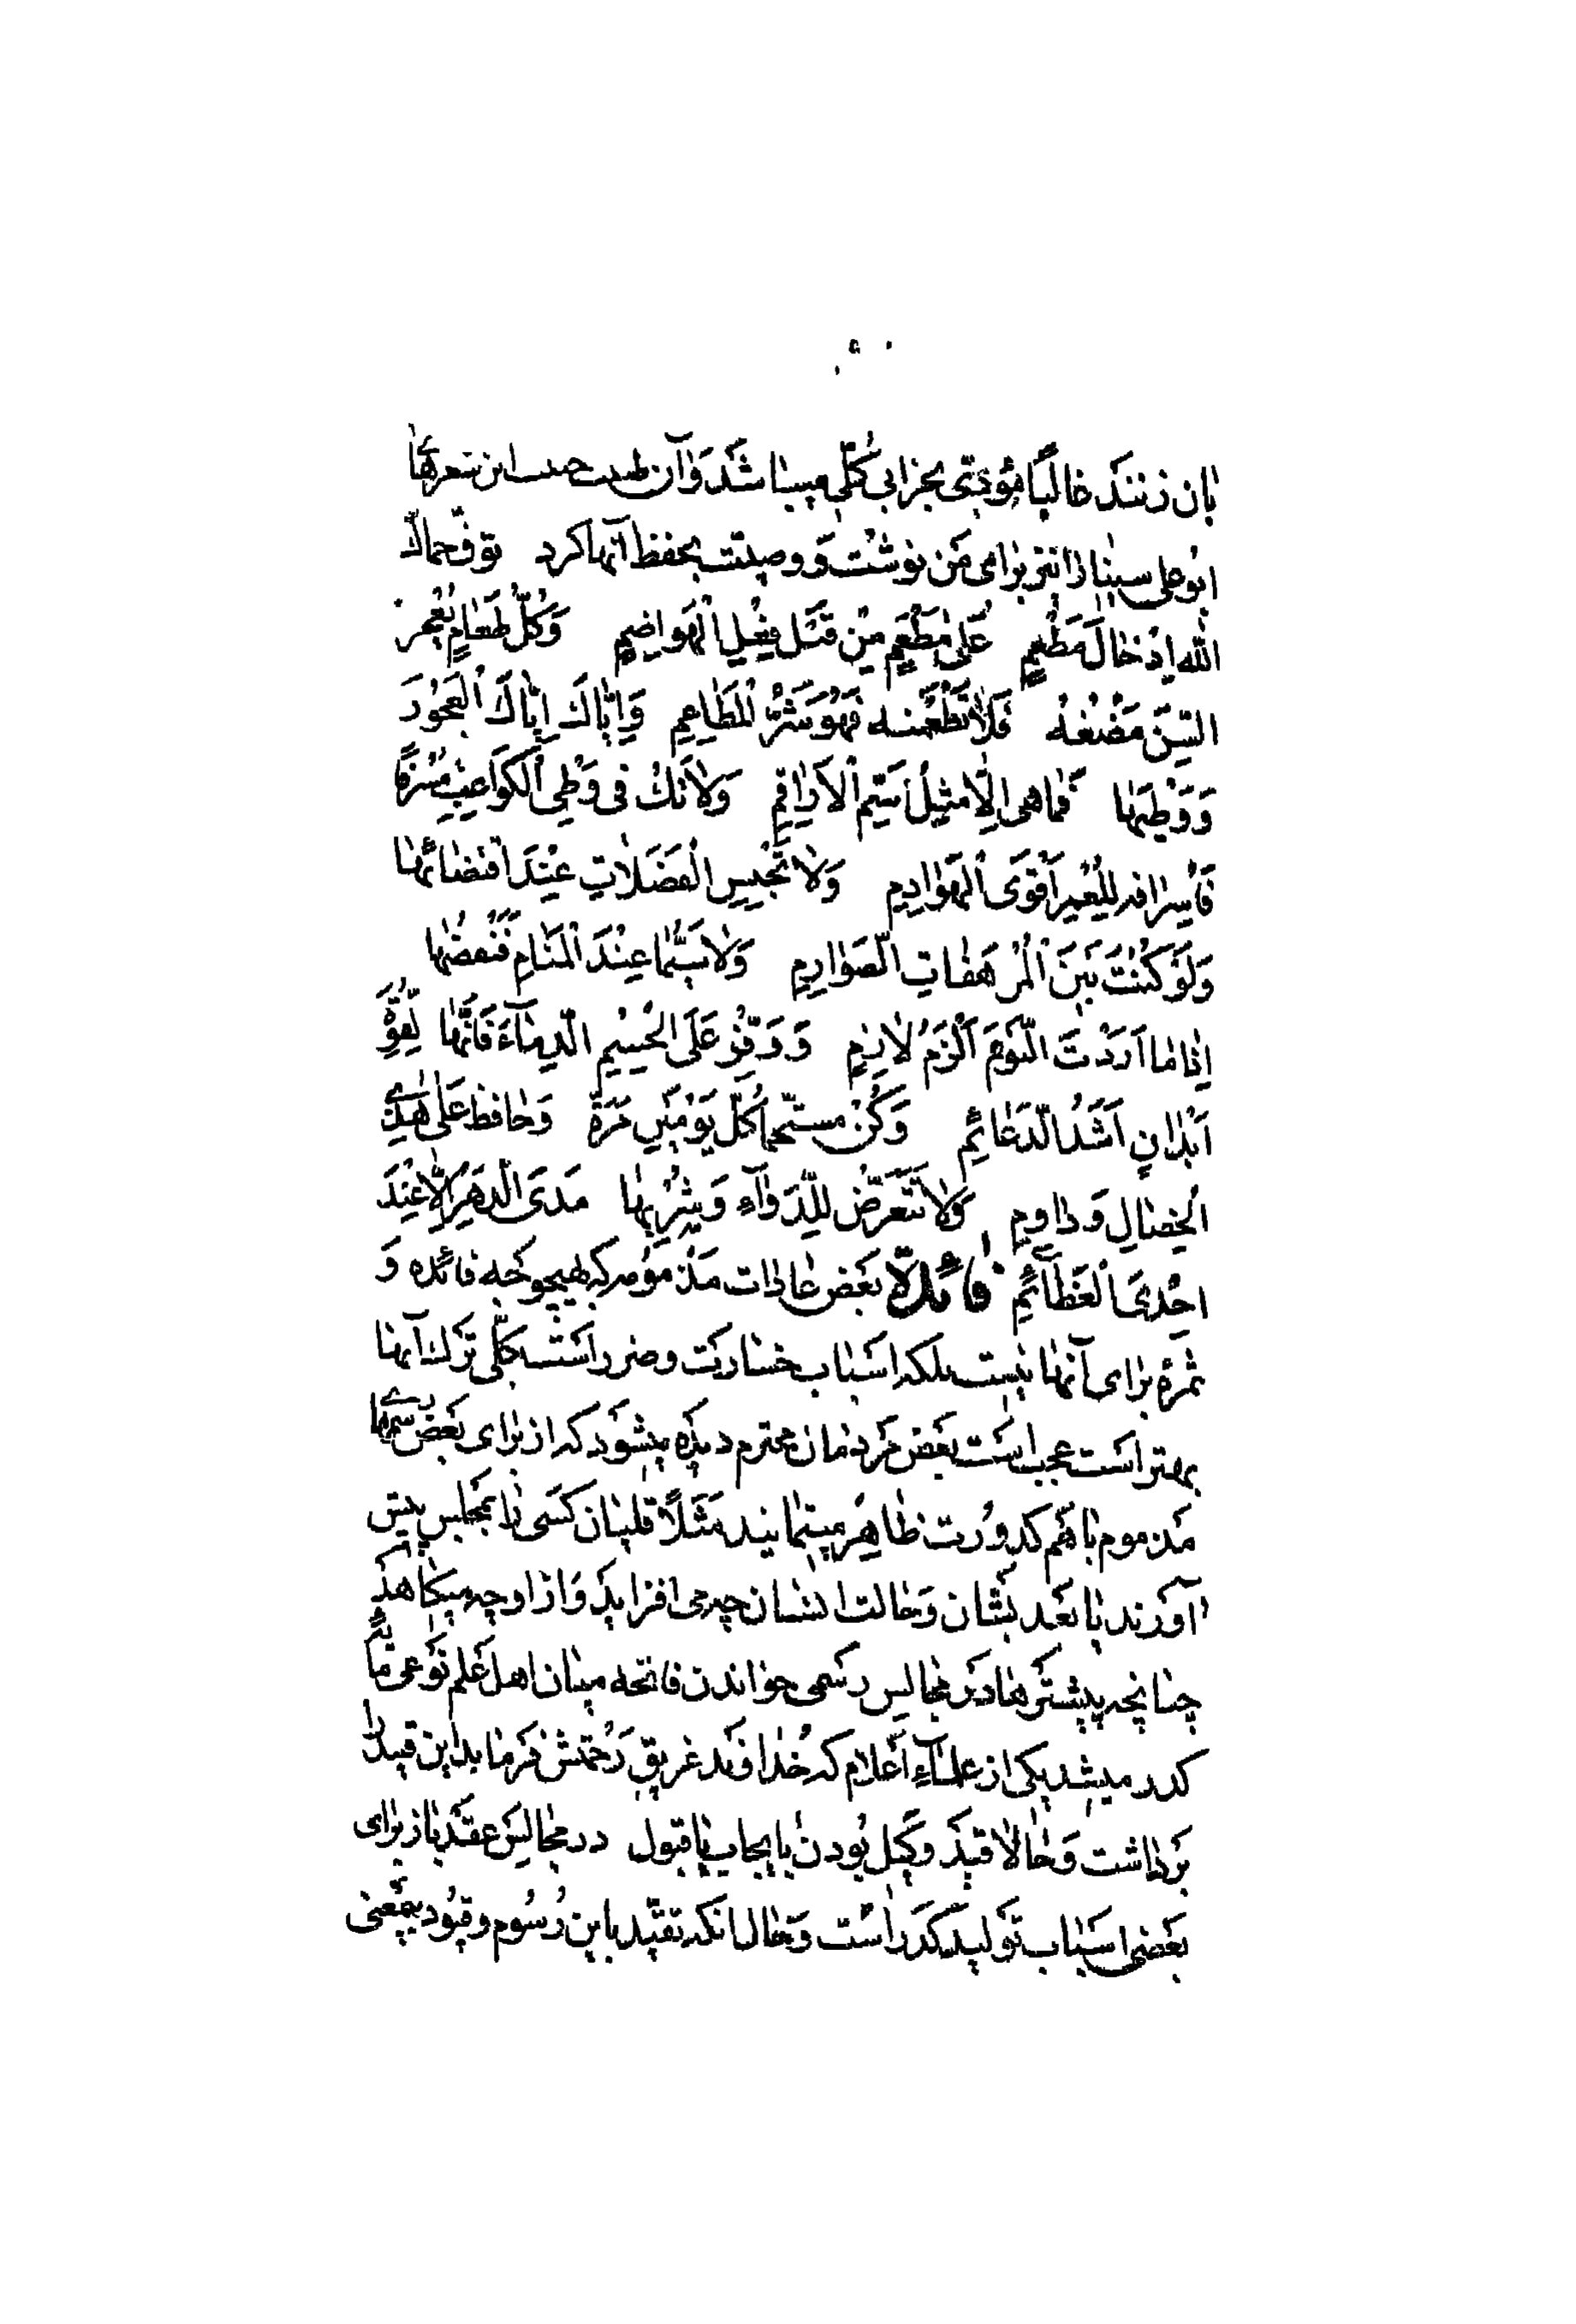 بان زنند غالبًا مؤدّی بخرابی کُلّی میباشد وَ آن طبیب این شعرهای
ابُوعلی سینا را نیز برای من نوشت وَ وصیّت بحفظ آنها کرد توقّ حماك
الله اِدْخالَ مَطْعَمٍ عَلیٰ مَطْعَمٍ مِنْ قَبْلِ فِعْلِ الْهَواضِمِ وَكُلُّ طَعامٍ یَعْجِزُ
السِّنُّ مَضْغَهُ فَلاٰ تَطْعَمَنْه فَهُوَ شَرُّ الْمَطٰاعِمِ وَاِیّٰاكَ اِیّٰاكَ الْعَجُوزَ
وَ وَطْیَهٰا فَمٰا هی اِلّٰا مِثْلُ سَمِّ الْاَرٰاقِمِ وَلاٰ تَكُ فی وَطْیِ الْكَوٰاعِبِ مُسْرِفًا
فَاِسْرافه لِلْعُمْرِ اَقْوَی الْهَوٰادِمِ وَلاٰ تَحْبِسِ الْفَضَلاٰتِ عِنْدَ اقْتِضائِهٰا
وَلَوْ كُنْتَ بَیْنَ الْمُرْهَفٰاتِ الصَّوٰارِمِ وَلاٰ سِیَّمٰا عِنْدَ الْمَنٰامِ فَنَفْضُهٰا
اِذا مٰا اَرَدْتَ النَّوْمَ اَلْزَمُ لاٰزِمٍ وَ وَفِّرْ عَلَی الْجِسْمِ الدِّمٰآءَ فَاِنَّهٰا لِقُوَّةِ
اَبْدٰانٍ اَشَدُّ الدَّعٰائِمِ وَكُنْ مستحمًّا كُلَّ یَوْمَیْنِ مَرَّةً وَحافظ عَلیٰ هٰذِی
الْخِصٰالِ وَ دٰاوِمِ وَلاٰ تَتَعَرَّضْ لِلدَّوٰآءِ وَ شُرْبِهٰا مَدَی الدَّهْرِ اِلّٰا عِنْدَ
اِحْدَی الْعَظٰآئِمِ فٰائدة بعض عادات مذمومه که بهیچوجه فائده وَ
ثمرهٔ برای آنها نیست بلکه اسباب خسارت و ضرر است بکلّی ترك آنها
بهتر است عجب است بعض مردمان محترم دیده میشود که از برای بعض رسمهای
مذموم با هم کدورت ظاهر مینمایند مثلًا قلیان کسی را بمجلس پیش
آورند یا بعد بشان وَ حالت انسان چه می افزاید وَ از او چه میکاهد
چنانچه پیشترها در مجالس رسمی خواندن فاتحه میان اهل علم نوعی مایهٔ
کدر میشد یکی از علمآءِ اعلام که خداوند غریق رحمتش فرماید این قید را
برداشت وَ حالا قید وکیل بودن بایجاب یا قبول در مجالس عقد باز برای
بعضی اسباب تولید کدر است وَ حال آنکه تقیّد باین رسوم و قیود بیمعنی